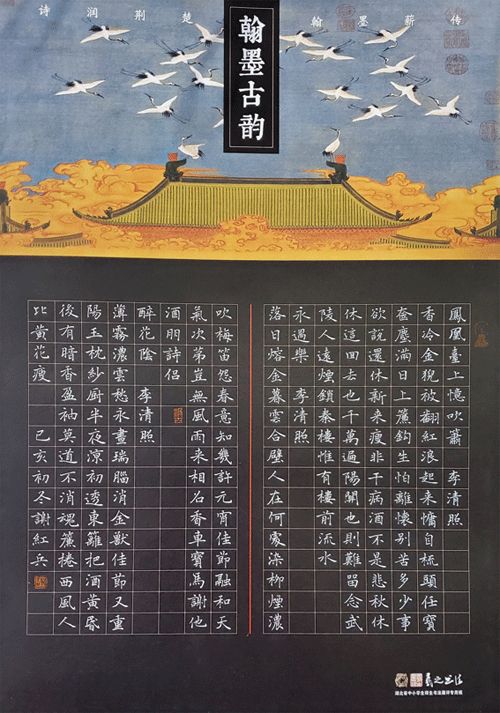 诗润荆楚 翰墨薪传
翰墨古韵
鳳凰臺上憶吹簫 李清照
香冷金猊被翻紅浪起來慵自梳頭任寶
奩塵滿日上簾鉤生怕離懷別苦多少事
欲說還休新來瘦非干病酒不是悲秋休
休這回去也千萬遍陽關也則難留念武
陵人遠煙鎖秦樓惟有樓前流水
永遇樂 李清照
落日熔金暮雲合璧人在何處染柳煙濃
吹梅笛怨春意知幾許元宵佳節融和天
氣次第豈無風雨來相召香車寶馬謝他
酒朋詩侶
醉花陰 李清照
薄霧濃雲愁永晝瑞腦消金獸佳節又重
陽玉枕紗厨半夜涼初透東籬把酒黃昏
後有暗香盈袖莫道不消魂簾捲西風人
比黃花瘦 己亥初冬謝紅兵
羲之书法